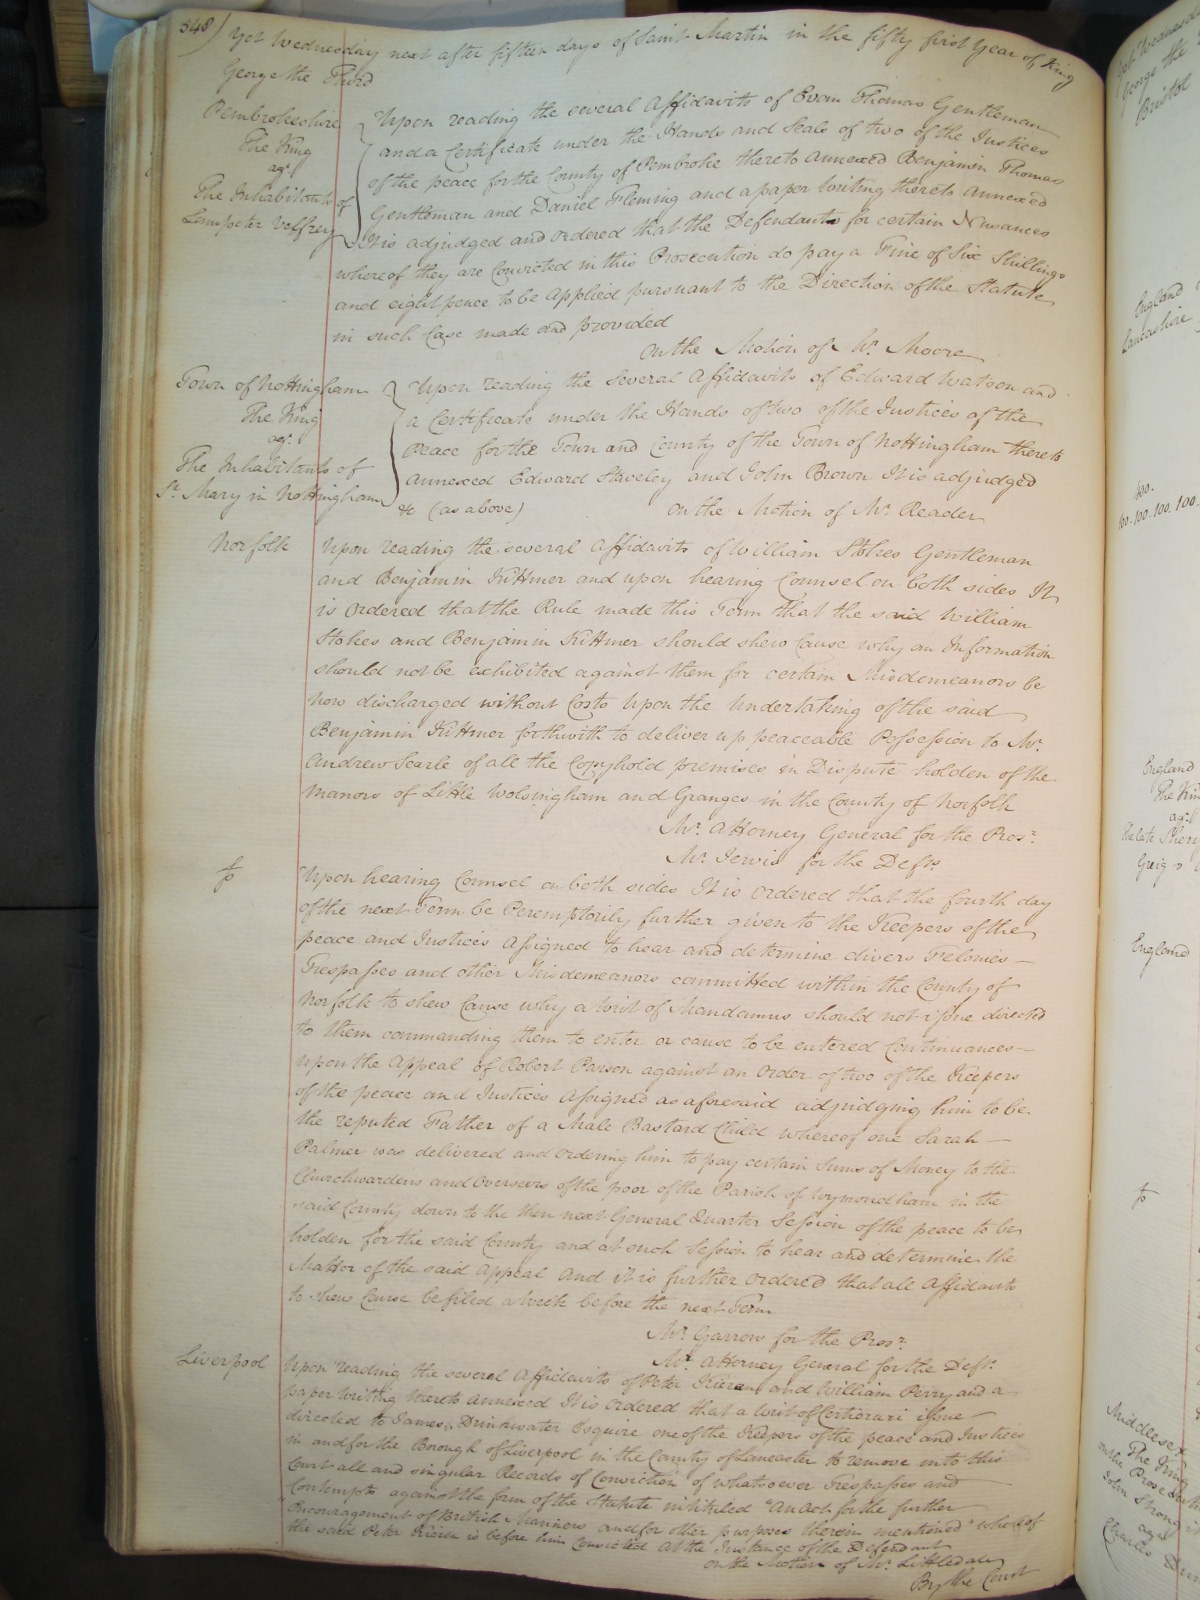 348) Yet Wednesday next after fifteen days of Saint Martin in the fifty first Year of King
George the Third
Pembrokeshire
The King
agt.
The Inhabitants of
Lampeter Velfrey
Upon reading the several Affidavits of Evan Thomas Gentleman
and a Certificate under the Hands and Seals of two of the Justices
of the peace for the County of Pembroke thereto Annexed Benjamin Thomas
Gentleman and Daniel Fleming and a paper Writing thereto Annexed
It is adjudged and ordered that the Defendants for certain Nusances
whereof they are Convicted in this Prosecution do pay a Fine of Six Shillings
and eight pence to be applied pursuant to the Direction of the Statute
in such Case made and provided
On the Motion of Mr. Moore
Town of Nottingham
The King
agt.
The Inhabitants of
St. Mary in Nottingham
Upon reading the Several Affidavits of Edward Watson and
a Certificate under the Hands of two of the Justices of the
Peace for the Town and County of the Town of Nottingham thereto
annexed Edward Staveley and John Brown It is adjudged
&c (as above)
On the Motion of Mr. Reader
Norfolk
Upon reading the several Affidavits of William Stokes Gentleman
and Benjamin Kittmer and upon hearing Counsel on both sides It
is Ordered that the Rule made this Term that the said William
Stokes and Benjamin Kittmer should shew Cause why an Information
should not be exhibited against them for certain Misdemeanors be
now discharged without Costs Upon the Undertaking of the said
Benjamin Kittmer forthwith to deliver up peaceable Possession to Mr.
Andrew Searle of all the Copyhold premises in Dispute holden of the
Manors of Little Walsingham and Granges in the County of Norfolk
Mr. Attorney General for the Prosr.
Mr. Jervis for the Defts.
Upon hearing Counsel on both sides It is Ordered that the fourth day
of the next Term be Peremptorily further given to the Keepers of the
peace and Justices Assigned to hear and determine divers Felonies
Trespasses and other Misdemeanors committed within the County of
Norfolk to shew Cause why a Writ of Mandamus should not issue directed
to them commanding them to enter or cause to be entered Continuances
upon the Appeal of Robert Parson against an Order of two of the Keepers
of the peace and Justices Assigned as aforesaid adjudging him to be
the reputed Father of a Male Bastard Child whereof one Sarah
Palmer was delivered and ordering him to pay certain Sums of Money to the
Churchwardens and Overseers of the poor of the Parish of Wymondham in the
said County down to the then next General Quarter Session of the peace to be
holden for the said County and at such Session to hear and determine the
Matter of the said Appeal And it is further Ordered that all Affidavits
to shew Cause be filed a Week before the next Term
Mr. Garrow for the Prosr.
Mr. Attorney General for the Deft.
Liverpool
Upon reading the several Affidavits of Peter Kieran and William Perry and a
paper Writing thereto annexed It is ordered that a Writ of Certiorari issue
directed to James Drinkwater Esquire one of the Keepers of the peace and Justices
in and for the Borough of Liverpool in the County of Lancaster to remove into this
Court all and singular Records of Conviction of whatsoever Trespasses and
Contempts against the form of the Statute intituled "An Act for the further
Encouragement of British Mariners and for other purposes therein mentioned" whereof
the said Peter Kieran is before him Convicted At the Instance of the Defendant
On the Motion of Mr. Littledale
By the Court
George the
Bristol
England
Lancashire
100.
100. 100. 100. 100.
England
The Kin
agt.
England
Middlesex
The King
on the Prosecution
John Strong
agt.
Charles